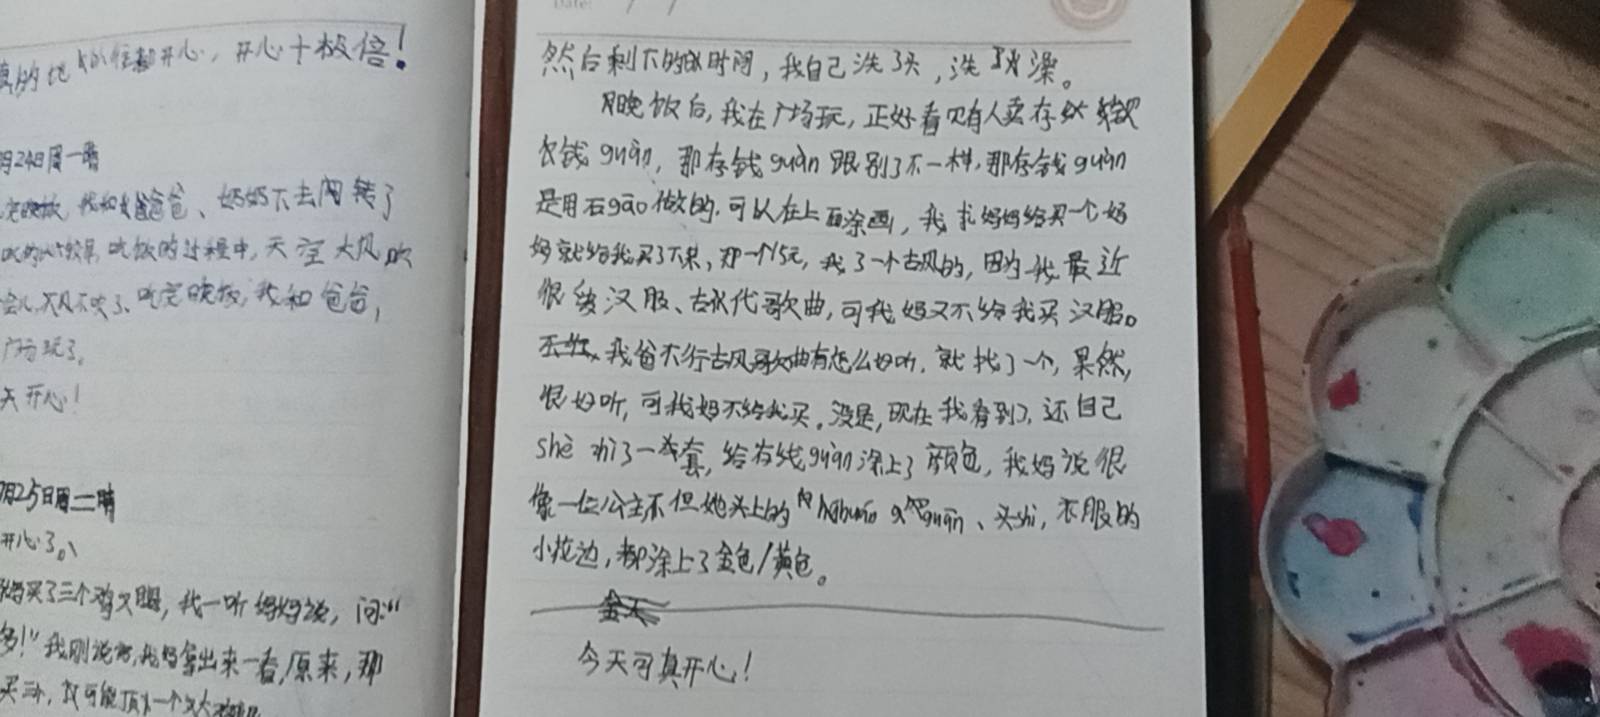 开心，开心十极倍！
月24日周一晴
爸爸、妈妈下去闲转了
吃饭的过程中，天空大风吹
大风不吹了、吃完晚饭，我和爸爸，
广场玩了。
天开心！
月25日周二晴
开心了。
买了三个鸡大腿，我一听妈妈说，问：“
多！”我刚说完，我妈拿出来一看，原来，那
Date:
然后剩下的时间，我自己洗了头，洗了澡。
晚饭后，我在广场玩，正好看见有人卖存
钱guàn，那存钱guàn跟别了不一样，那存钱guàn
是用石gāo做的，可以在上面涂画，我求妈妈给买一个妈
妈就给我买了下来，那一个15元，我了一个古风的，因为我最近
很爱汉服、古代歌曲，可我妈又不给我买汉服。
我爸不行古风歌曲有怎么好听，就找了一个，果然，
很好听，可我妈不给我买。没是，现在我看到了，还自己
shè zhì了一套，给存钱guàn涂上了颜色，我妈说很
像一位公主不但她头上的 guān、头shì，衣服的
小花边，都涂上了金色/黄色。
今天可真开心！